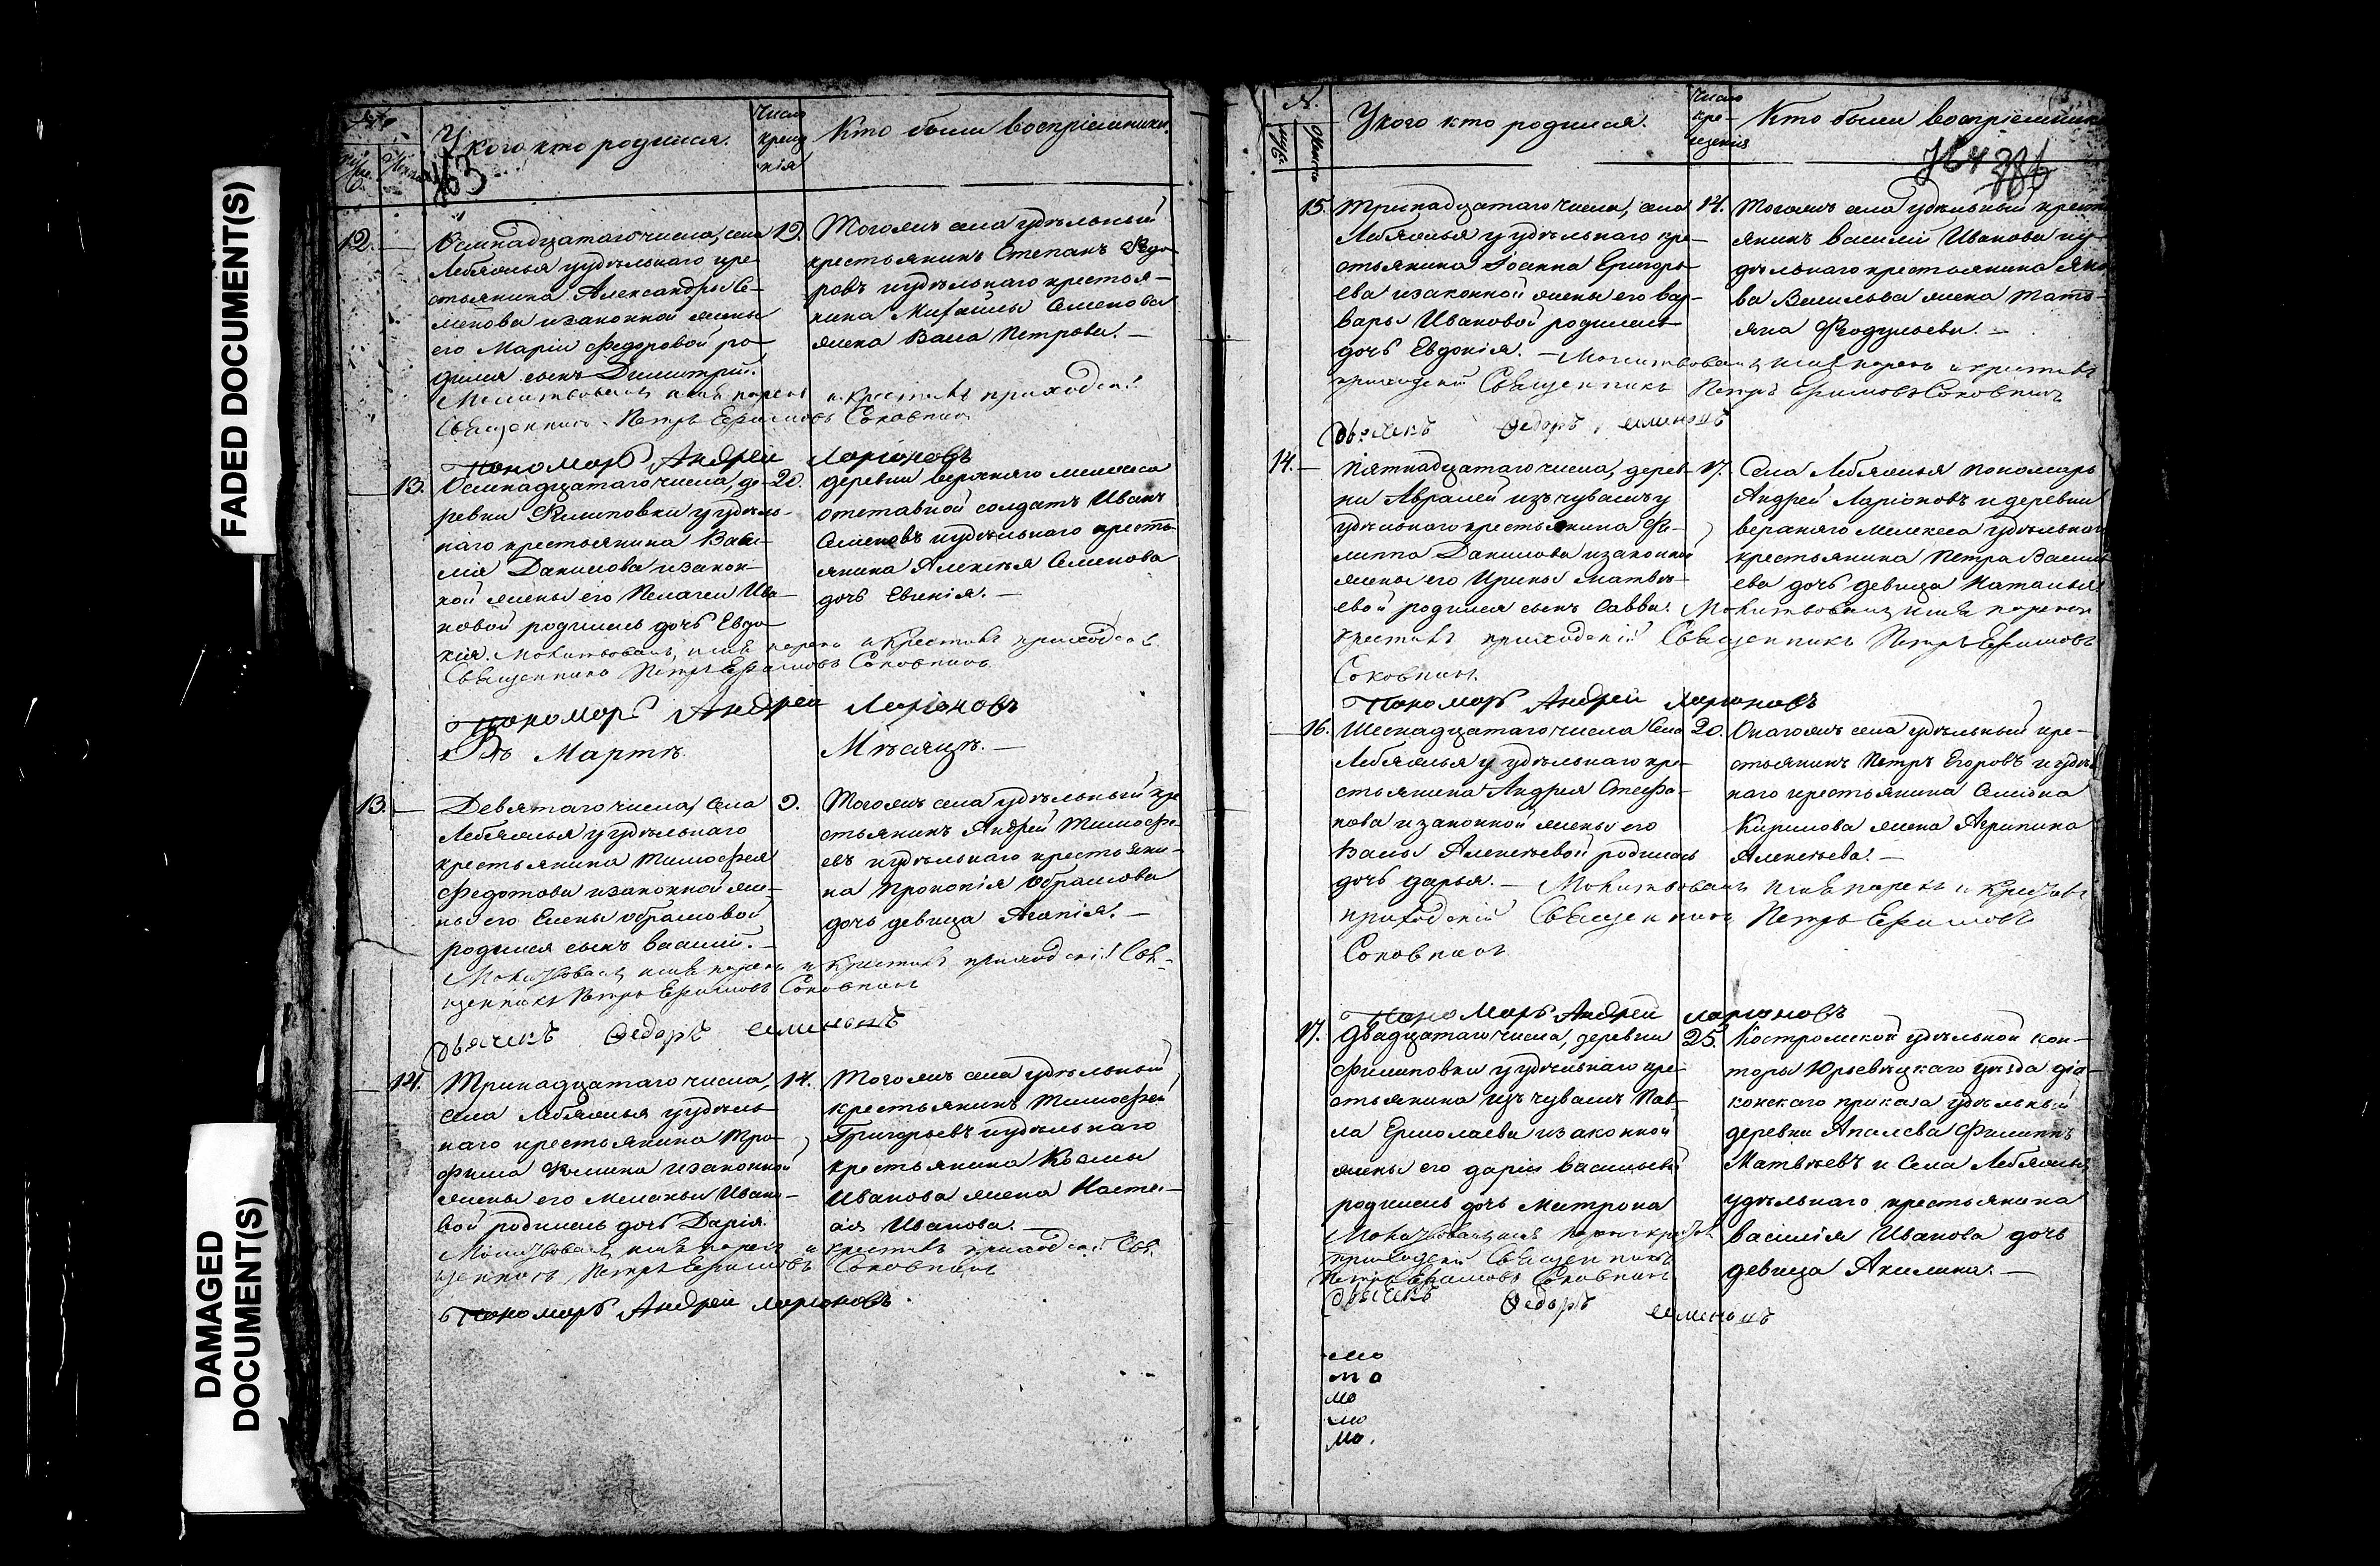 FADED DOCUMENT(S)
DAMAGED
DOCUMENT(S)
№
У кого кто родился.
Число
креще
нія
Кто были воспріемники.
763
12.
Осмнадцатаго числа, села
Лебяжья у удѣльнаго кре-
стьянина Александра Се-
менова и законной жены
его Маріи Федоровой ро-
дился сынъ Димитрій.
19.
Тогожъ села удѣльный
крестьянинъ Степанъ Ѳедо-
ровъ и удѣльнаго крестья-
нина Михайлы Семенова
жена Васа Петрова. —
Молитвовалъ, имя нарекъ и крестилъ приходскій
Священникъ Петръ Ефимовъ Соковнинъ
Пономарь Андрей Ларіоновъ
13.
Осмнадцатаго числа, де-
ревни Филиповки у удѣль-
наго крестьянина Васи-
лія Данилова и закон-
ной жены его Пелагеи Ива-
новой родилась дочь Евдо-
кія.
20.
деревни верхняго мелекеса
отставной солдатъ Иванъ
Семеновъ и удѣльнаго кресть-
янина Алексѣя Семенова
дочь Евгенія. —
Молитвовалъ, имя нарекъ и крестилъ приходскій
Священникъ Петръ Ефимовъ Соковнинъ
Пономарь Андрей Ларіоновъ
Въ Мартѣ Мѣсяцѣ. —
13.
Девятаго числа, села
Лебяжья у удѣльнаго
крестьянина Тимофея
Федотова и законной же-
ны его Елены Обрамовой
родился сынъ Василій. —
9.
Тогожъ села удѣльный кре
стьянинъ Андрей Тимофе-
евъ и удѣльнаго крестьяни-
на Прокопія Обрамова
дочь девица Агапія. —
Молитвовалъ имя нарекъ и крестилъ приходскій Свя-
щенникъ Петръ Ефимовъ Соковнинъ
дьячекъ Ѳедоръ
14.
Тринадцатаго числа,
села Лебяжья у удѣль-
наго крестьянина Тро-
фима Фомина и законной
жены его Меланьи Ивано-
вой родилась дочь Дарія.
14.
Тогожъ села удѣльный
крестьянинъ Тимофей
Григорьевъ и удѣльнаго
крестьянина Космы
Иванова жена Настас-
ія Иванова. —
Молитвовалъ имя нарекъ и крестилъ приходскій Свя-
щенникъ Петръ Ефимовъ Соковнинъ
Пономарь Андрей Ларіоновъ.
№
У кого кто родился.
Число
кре-
щенія
Кто были воспріемники
764
15.
Тринадцатаго числа, села
Лебяжья у удѣльнаго кре-
стьянина Іоанна Григорь-
ева и законной жены его Вар-
вары Ивановой родилась
дочь Евдокія. —
14.
Тогожъ села удѣльный крест
янинъ Василій Ивановъ и у-
дѣльнаго крестьянина Яко
ва Васильева жена Тать-
яна Ѳеодульева. —
Молитвовалъ имя нарекъ и крестилъ
приходскій Священникъ Петръ Ефимовъ Соковнинъ
дьячекъ Ѳедоръ
14.
Пятнадцатаго числа, дерев-
ни Авралей изъ чувашъ у
удѣльнаго крестьянина Фи-
липпа Данилова и законной
жены его Ирины Матвѣ-
евой родился сынъ Савва.
17.
Села Лебяжья пономарь
Андрей Ларіоновъ и деревни
верхняго мелекеса удѣльнаго
крестьянина Петра Василь
ева дочь девица Наталья
Молитвовалъ имя нарекъ и
крестилъ приходскій Священникъ Петръ Ефимовъ
Соковнинъ.
Пономарь Андрей Ларіоновъ
16.
Шеснадцатаго числа села
Лебяжья у удѣльнаго кре-
стьянина Андрея Стефа-
нова и законной жены его
Васы Алексѣевой родилась
дочь Дарья. —
20.
Онагожъ села удѣльный кре-
стьянинъ Петръ Егоровъ и удѣль
наго крестьянина Семіона
Кирилова жена Агрипина
Алексѣева. —
Молитвовалъ имя нарекъ и крестилъ
приходскій Священникъ Петръ Ефимовъ
Соковнинъ
Пономарь Андрей Ларіоновъ
17.
Двадцатаго числа, деревни
Филиповки у удѣльнаго кре-
стьянина изъ чувашъ Пав-
ла Ермолаева и законной
жены его Даріи Васильевой
родилась дочь Матрона
25.
Костромской удѣльной кон-
торы Юрьевецкаго уѣзда діа-
конскаго приказа удѣльный
деревни Апалева Филиппъ
Матвѣевъ и Села Лебяжья
удѣльнаго крестьянина
Василія Иванова дочь
девица Акилина. —
Молитвовалъ имя нарекъ и крестилъ
приходскій Священникъ
Петръ Ефимовъ Соковнинъ
дьячекъ Ѳедоръ